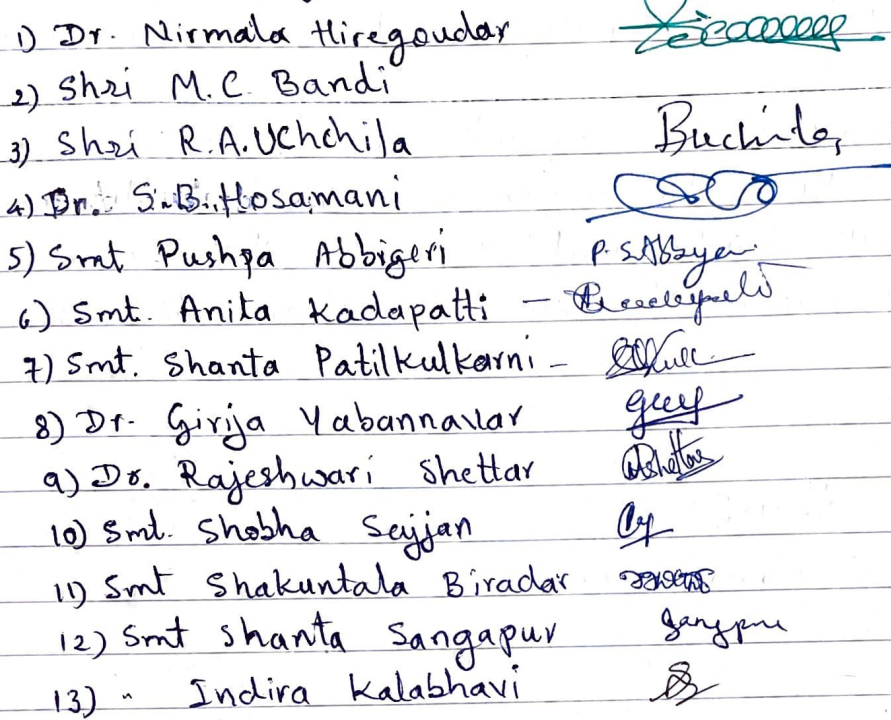 1) Dr. Nirmala Hiregoudar
2) Shri M.C. Bandi
3) Shri R.A.Uchchila Buchila
4) Dr. S.B. Hosamani
5) Smt Pushpa Abbigeri P.S.Abbyeri
6) Smt. Anita Kadapatti -
7) Smt. Shanta Patilkulkarni -
8) Dr. Girija Yabannavar
9) Dr. Rajeshwari Shettar Rshettar
10) Smt. Shobha Sajjan
11) Smt Shakuntala Biradar
12) Smt Shanta Sangapur
13) " Indira Kalabhavi